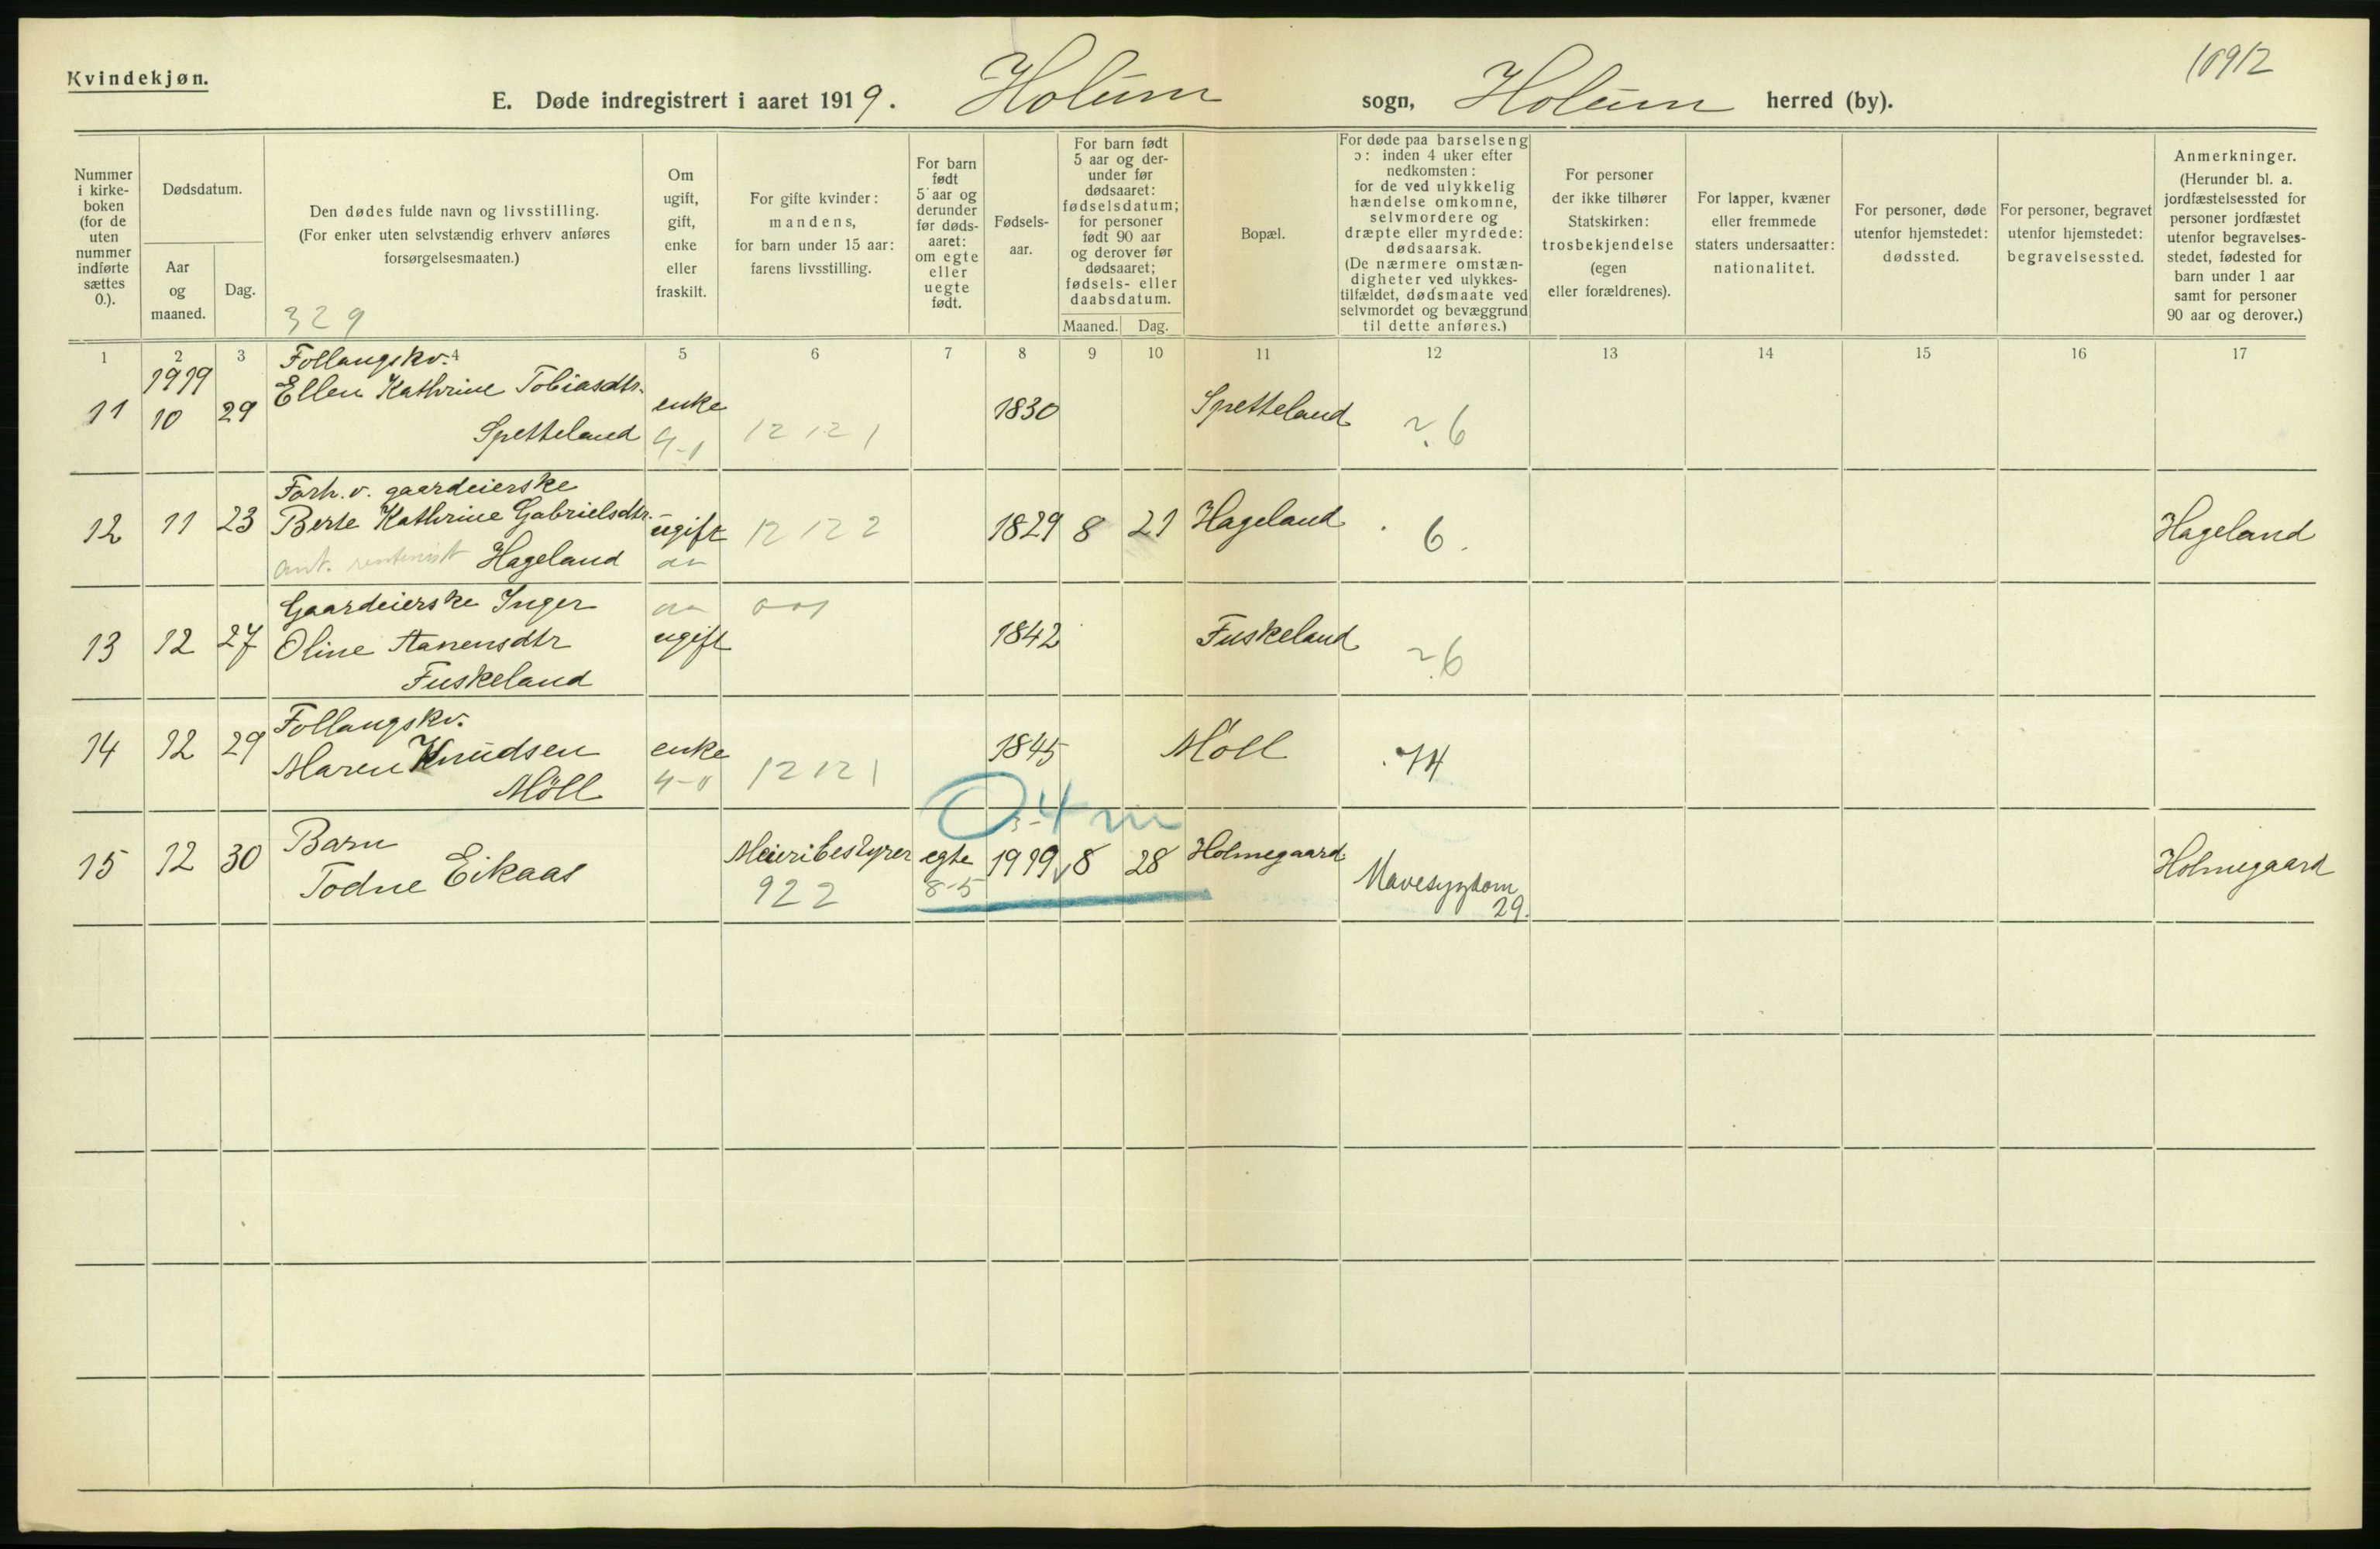 Kvindekjøn.
10912
E. Døde indregistrert i aaret 1919. Holum sogn, Holum herred (by).
Nummer i kirkeboken (for de uten nummer indførte sættes 0.).
Dødsdatum.
Aar og maaned.
Dag.
Den dødes fulde navn og livsstilling.
(For enker uten selvstændig erhverv anføres
forsørgelsesmaaten.)
329
Om ugift, gift, enke eller fraskilt.
For gifte kvinder:
mandens,
for barn under 15 aar:
farens livsstilling.
For barn født 5 aar og derunder før dødsaaret: om egte eller uegte født.
Fødselsaar.
For barn født 5 aar og derunder før dødsaaret: fødselsdatum; for personer født 90 aar og derover før dødsaaret; fødsels- eller daabsdatum.
Maaned. Dag.
Bopæl.
For døde paa barselseng
ɔ: inden 4 uker efter
nedkomsten:
for de ved ulykkelig
hændelse omkomne,
selvmordere og
dræpte eller myrdede:
dødsaarsak.
(De nærmere omstæn-
digheter ved ulykkes-
tilfældet, dødsmaate ved
selvmordet og bevæggrund
til dette anføres.)
For personer
der ikke tilhører
Statskirken:
trosbekjendelse
(egen
eller forældrenes).
For lapper, kvæner
eller fremmede
staters undersaatter:
nationalitet.
For personer, døde
utenfor hjemstedet:
dødssted.
For personer, begravet
utenfor hjemstedet:
begravelsessted.
Anmerkninger.
(Herunder bl. a.
jordfæstelsessted for
personer jordfæstet
utenfor begravelses-
stedet, fødested for
barn under 1 aar
samt for personer
90 aar og derover.)
1 2 3 4 5 6 7 8 9 10 11 12 13 14 15 16 17
1919
Follaugskv.
11 10 29 Ellen Kathrine Tobiasdtr. enke 1830 Spetteland
Spetteland 4-1 12 12 1 ? 6
Forh. v. gaardeierske
12 11 23 Berte Kathrine Gabrielsdtr. ugift 12 12 2 1829 8 21 Hageland 6. Hageland
ant. rentenist Hageland
Gaardeierske Inger
13 12 27 Oline Aanensdtr ugift 1842 Fuskeland ? 6
Fuskeland
Follaugskv.
14 12 29 Maren Knudsen enke 1845 Møll 74
Møll 4-0 12 12 1
0-4 m
Barn
15 12 30 Todne Eikaas Meieribestyrer egte 1919 8 28 Holmegaard Mavesygdom Holmegaard
922 8-5 29.